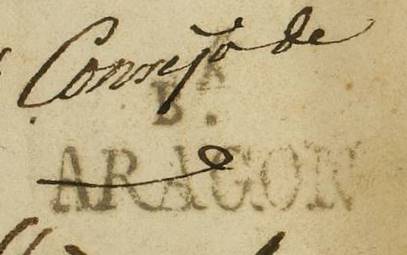 Consejo de
B.A
ARAGON